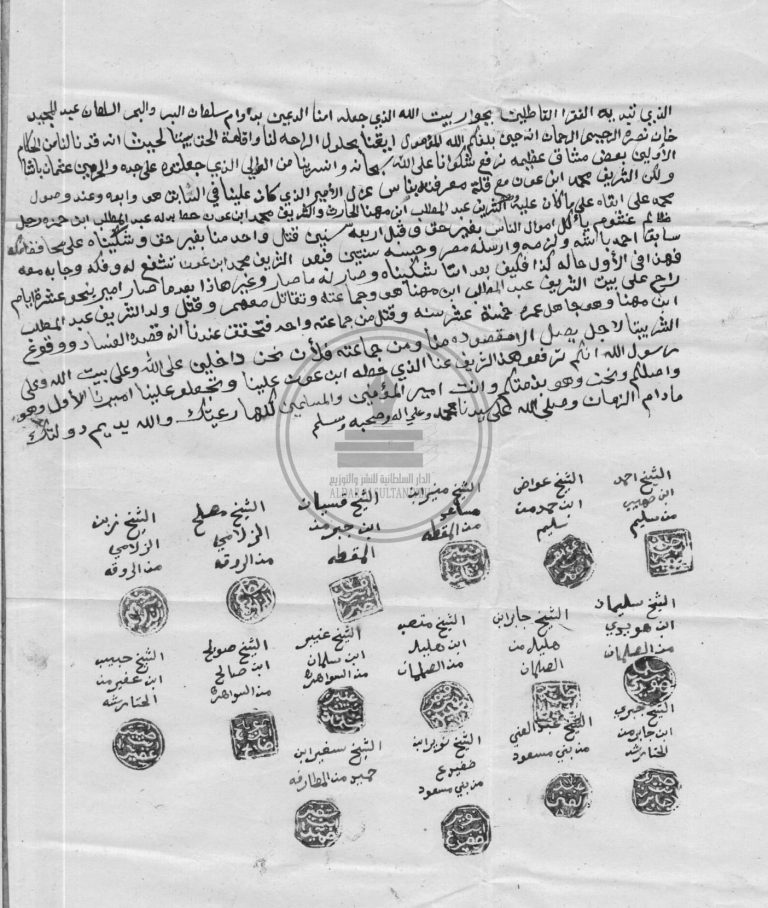 الذي تنديه الفقرا القاطنين بجوار بيت الله الذي جعله امنا الداعين بدوام سلطان البر والبحر السلطان عبد المجيد
خان نصره الرحمان انه حين بلغكم الله المامول ايقنا بحلول الراحه لنا واقامة الحق بيننا لحيث انه قد نالنا من الحكام
الأولين بعض مشاق عظيمه نرفع شكوانا على الله سبحانه وانسرينا من الوالي الذي جعلته على جده والحرمين عثمان باشا
ولكن الشريف محمد ابن عون مع قلة معرفته بالناس عزل الأمير الذي كان علينا في السابق هو وابوه وعند وصول
محمد على ابقاه على ما كان عليه الشريف عبد المطلب ابن مهنا الحارث والشريف محمد ابن عون حط بدله عبد المطلب ابن حمزه رجل
ظالم غشوم يأكل اموال الناس بغير حق وقبل اربعه سنين قتل واحد منا بغير حق وشكيناه على محافظ مكه
سابقا احمد باشا ولزمه وارسله مصر وحبسه سنتين فبعد الشريف محمد ابن عون تشفع له وفكه وجابه معه
فهذا في الأول حاله كذا فكيف بعد اننا شكيناه وصار له ما صار وغير هاذا بعد ما صار امير بنحو عشرة ايام
راح على بيت الشريف عبد المطلب ابن مهنا هو وجماعته وتقاتل معهم وقتل ولد الشريف عبد المطلب
ابن مهنا وهو جاهل عمره خمسة عشر سنه وقتل من جماعته واحد فتحقق عندنا ان قصده الفساد ووقوع
الشر بيننا لاجل يصل الا مقصوده منا ومن جماعته فلأن نحن داخلين على الله وعلى بيت الله وعلى
رسول الله انكم ترفعو هذا الشريف عنا الذي حطه ابن عون علينا وتجعلو علينا اميرنا الأول وهو
واصلكم ونحن وهو بذمتكم وانت امير المؤمنين والمسلمين كلها رعيتك والله يديم دولتك
مادام الزمان وصلى الله على سيدنا محمد وعلى اله وصحبه وسلم
الدار السلطانية للنشر والتوزيع
ALDAR ALSULTANIYAH
الشيخ احمد
ابن
من سليم
الشيخ عواض
ابن حمد من
سليم
الشيخ منير ابن
مساعد
من المقطه
الشيخ قسيان
ابن جبر من
المقطه
الشيخ مصلح
الزلامي
من الروقه
الشيخ زبن
الزلامي
من الروقه
الشيخ سليمان
ابن هويدي
من الصلمان
الشيخ جابر ابن
هليل من
الصلمان
الشيخ متعب
ابن هليل
من الصلمان
الشيخ عنيبر
ابن سلمان
من السواهره
الشيخ صويلح
ابن صالح
من السواهره
الشيخ حبيب
ابن عفير من
الخنارشه
الشيخ جبري
ابن جابر من
الخنارشه
الشيخ عبد الغني
من بني مسعود
الشيخ نوير ابن
من بني مسعود
الشيخ سفير ابن
حميد من المطارفه